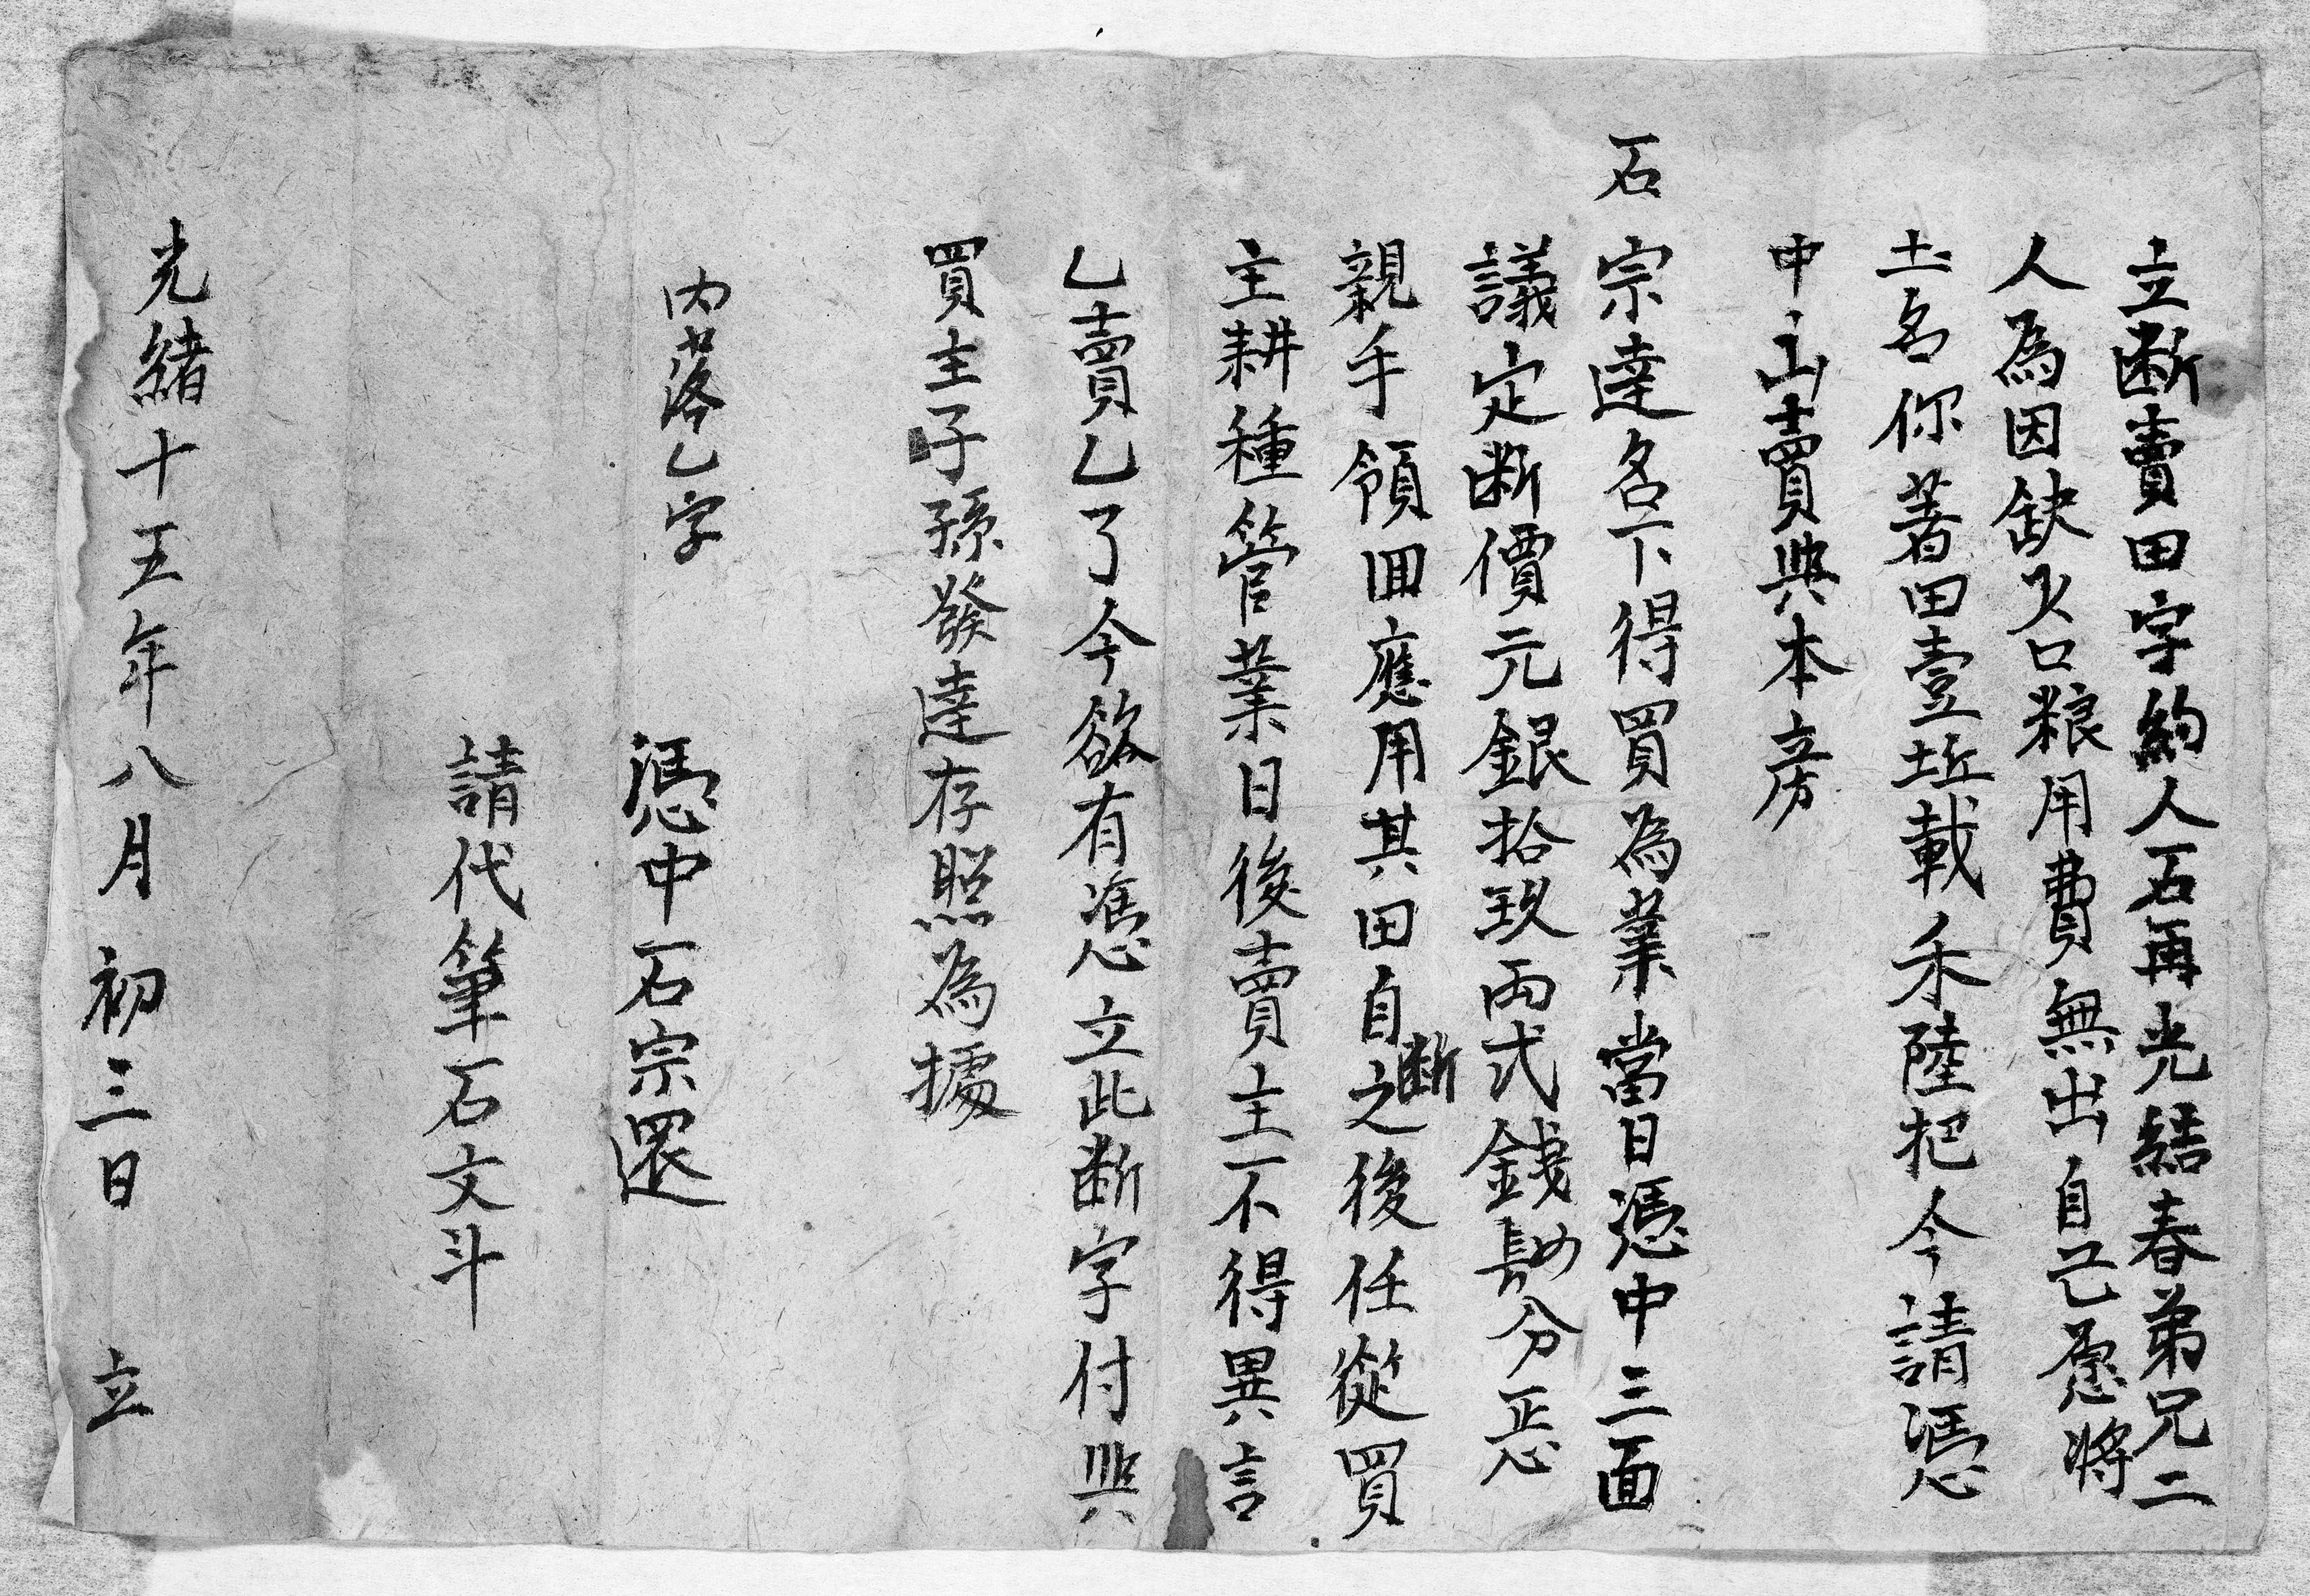 立断賣田字約人石再光結春弟兄二
人為因缺乆口粮用費無出自己愿將
土名你著田壹坵載禾陸把今請憑
中山賣與本房
石宗達名下得買為業當日憑中三面
議定断價元銀拾玖兩弍錢分恁
親手領回應用其田自断之後任從買
主耕種管業日後賣主不得異言
乙賣乙了今欲有憑立此断字付與
買主子孫發達存照為據
内落乙字
憑中石宗還
請代筆石文斗
光緒十五年八月初三日立